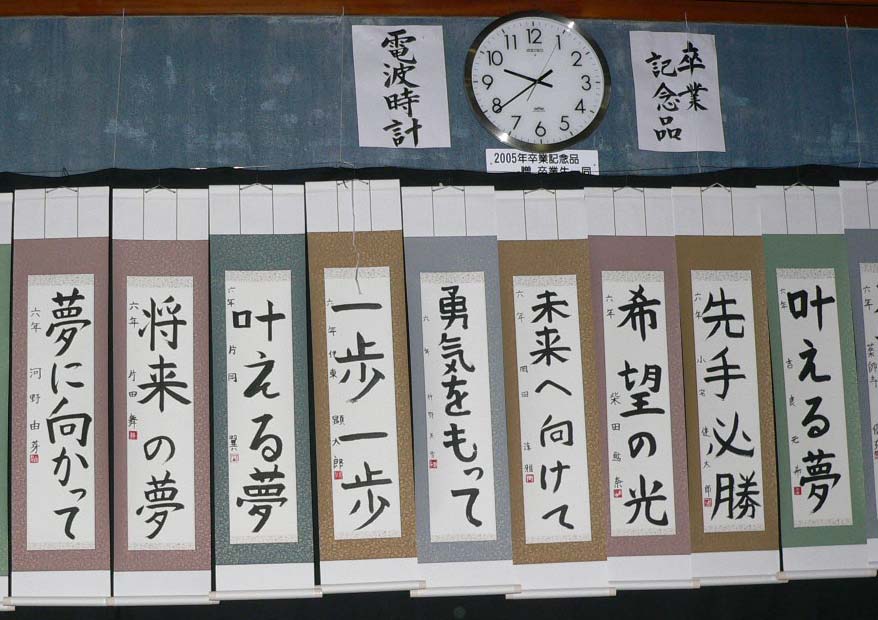 卒業
記念品
電波時計
SEIKO
12
1
2
3
4
5
6
7
8
9
10
11
2005年卒業記念品
贈 卒業生一同
薬師寺
叶える夢
六年
先手必勝
六年 健太郎
希望の光
六年 柴田
未来へ向けて
六年 岡田
勇気をもって
六年
一歩一歩
六年 伊東 顕太郎
叶える夢
六年 片岡 翼
将来の夢
六年 片田 舞
夢に向かって
六年 河野由芽